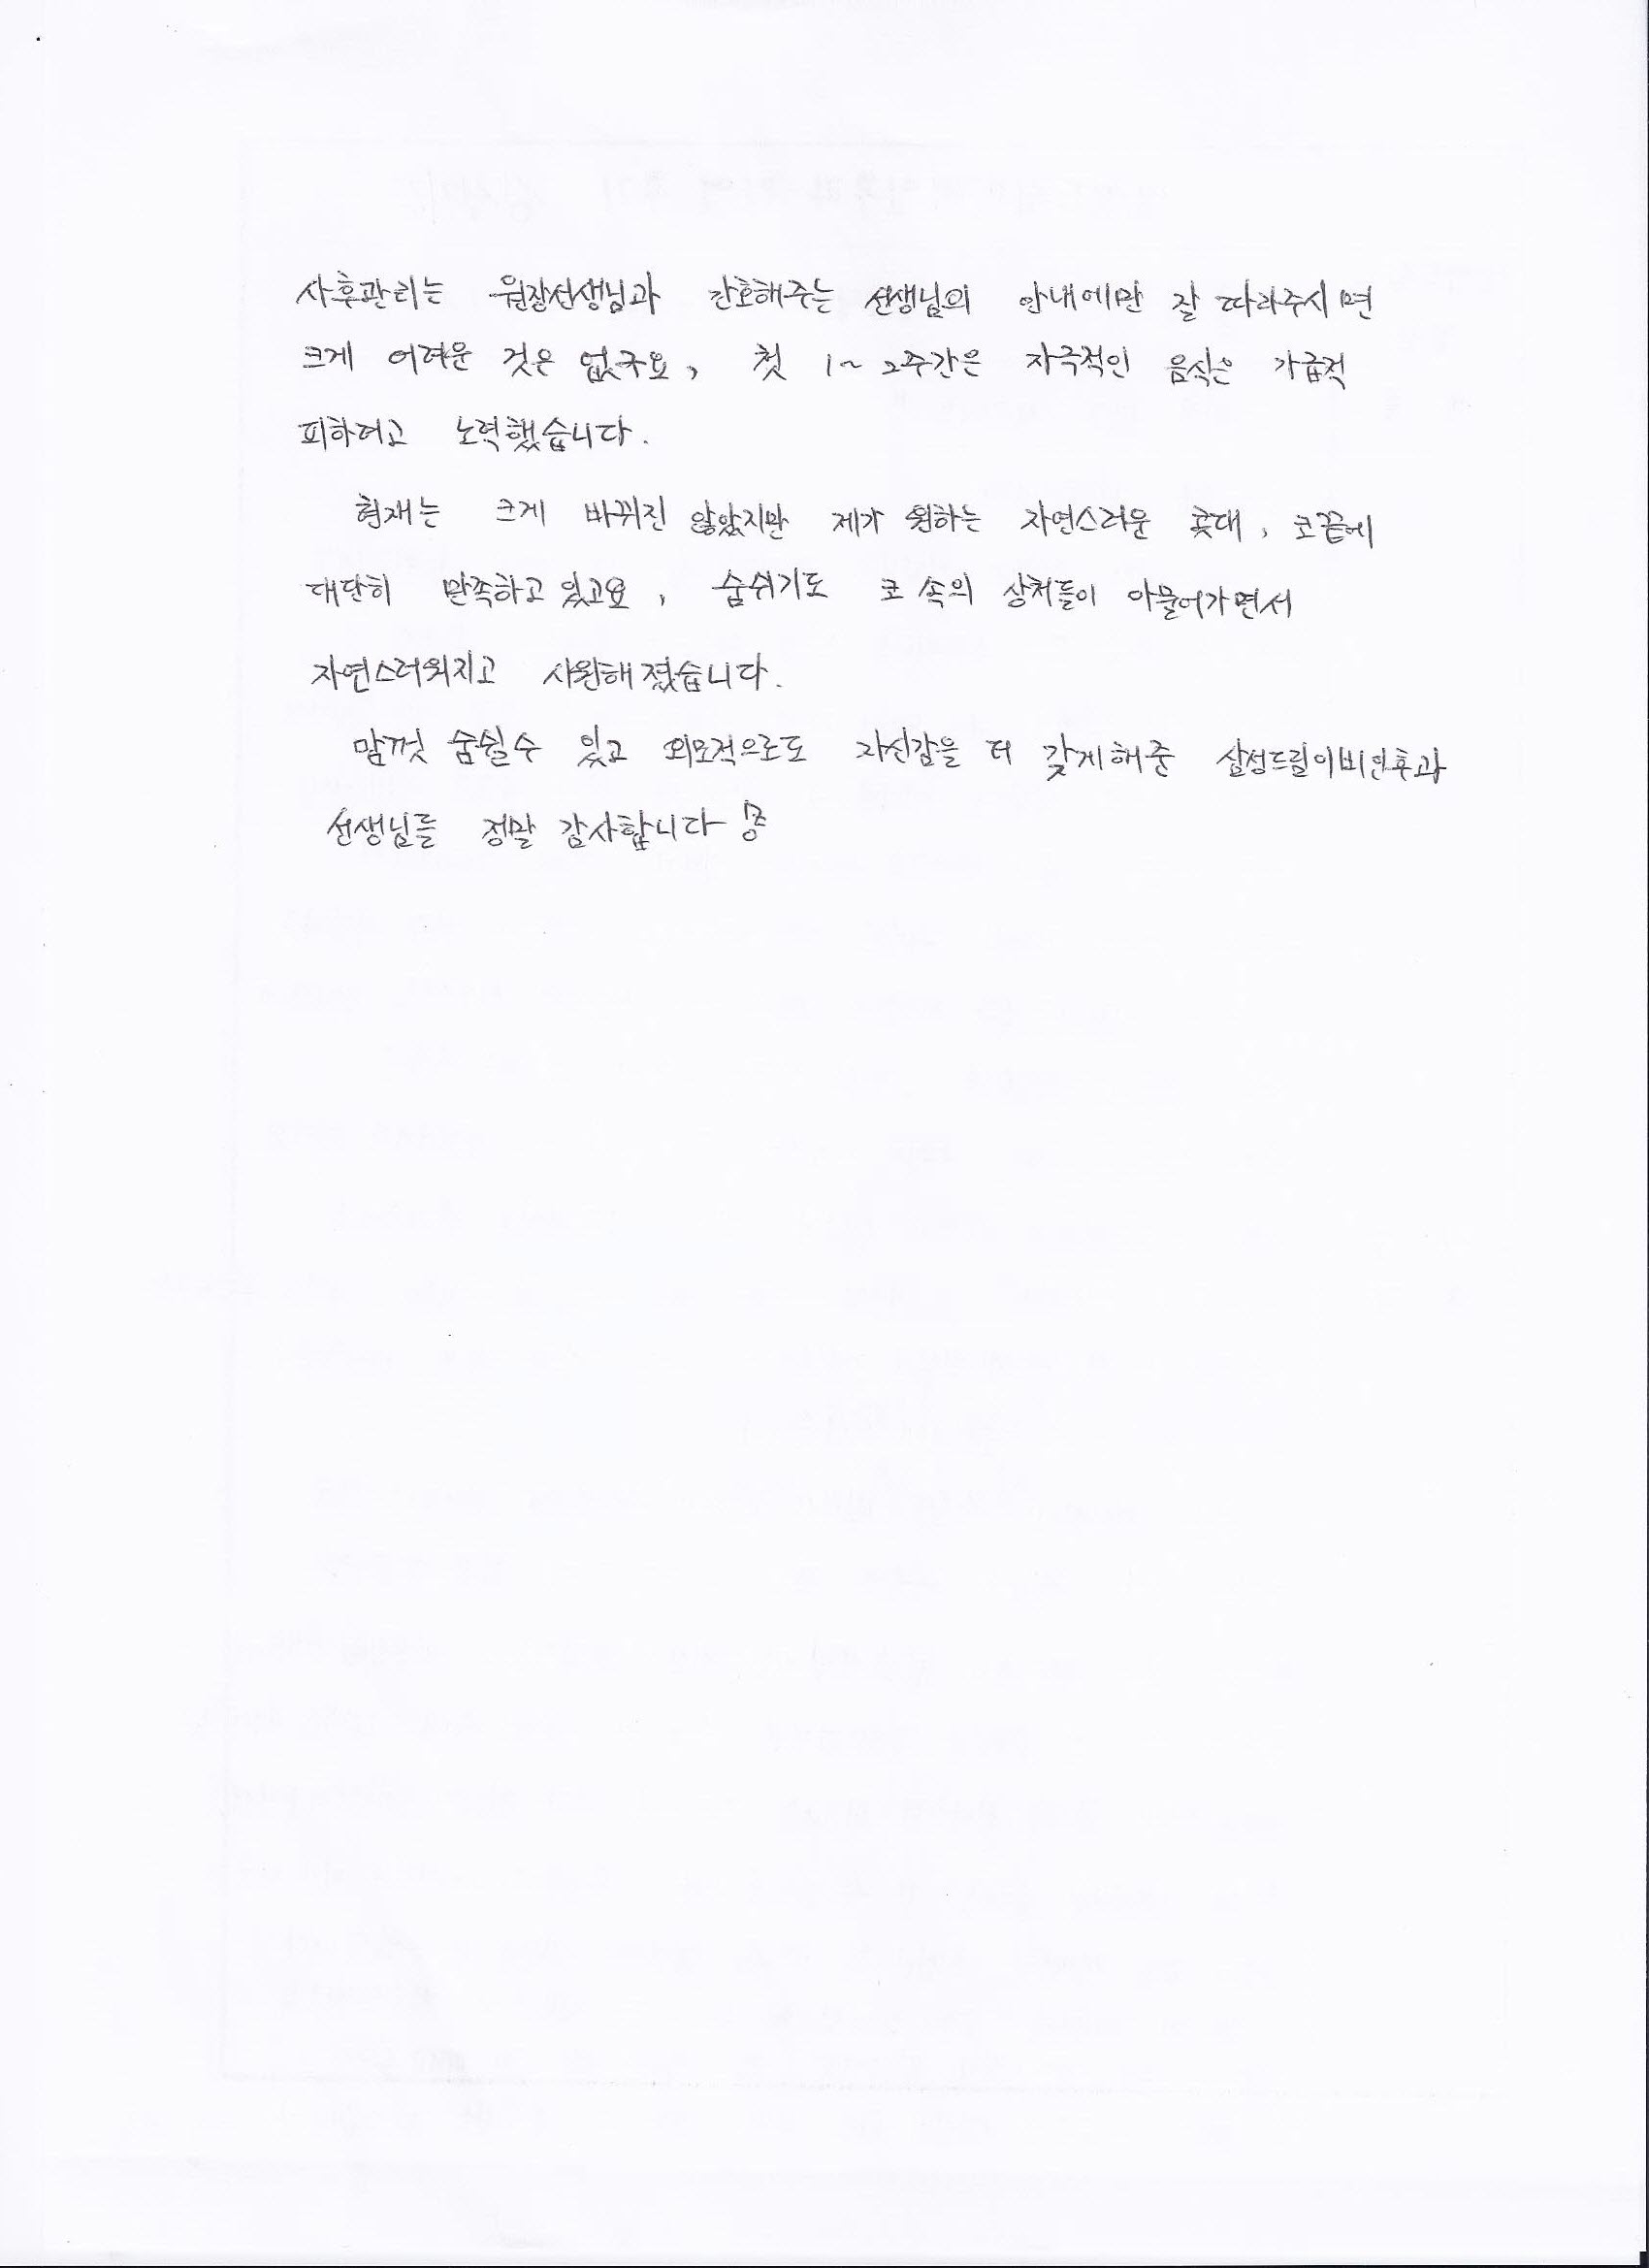 사후관리는 원장선생님과 간호해주는 선생님의 안내에만 잘 따라주시면
크게 어려운 것은 없구요, 첫 1~2주간은 자극적인 음식은 가급적
피하려고 노력했습니다.
현재는 크게 바뀌진 않았지만 제가 원하는 자연스러운 콧대, 코끝에
대단히 만족하고 있고요, 숨쉬기도 코 속의 상처들이 아물어가면서
자연스러워지고 시원해졌습니다.
맘껏 숨쉴수 있고 외모적으로도 자신감을 더 갖게해준 삼성드림이비인후과
선생님들 정말 감사합니다